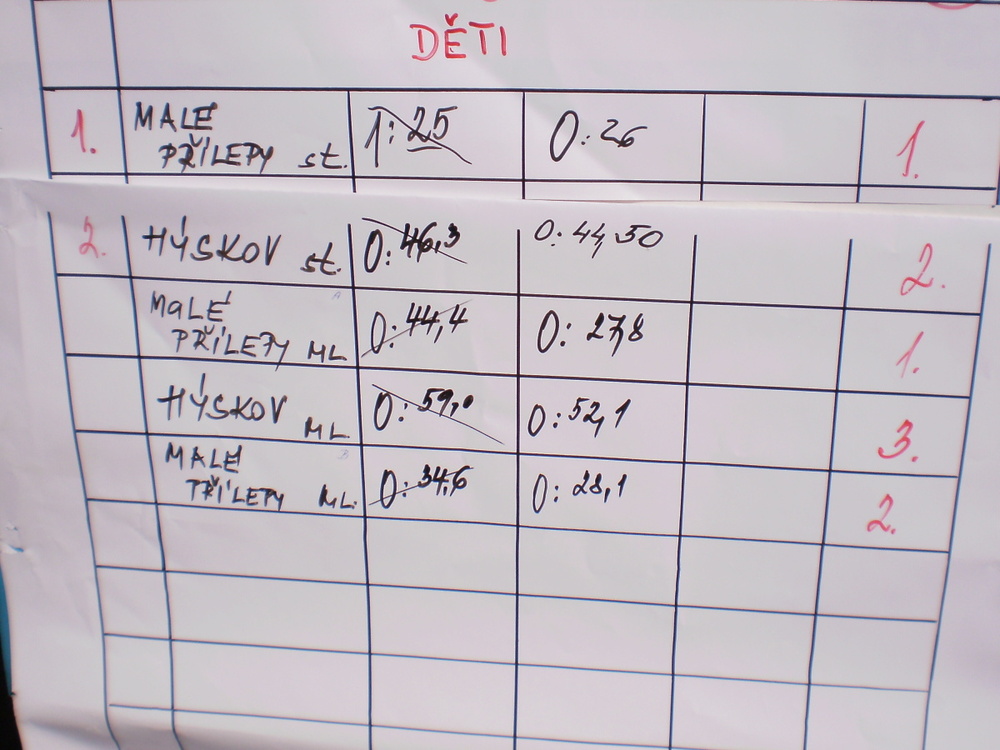 DĚTI
1. MALÉ PŘÍLEPY st. 1:25 0:26 1.
2. HÝSKOV st. 0:46,3 0:44,50 2.
MALÉ PŘÍLEPY ML A 0:44,4 0:27,8 1.
HÝSKOV ML 0:59,0 0:52,1 3.
MALÉ PŘÍLEPY ML. B 0:34,6 0:28,1 2.